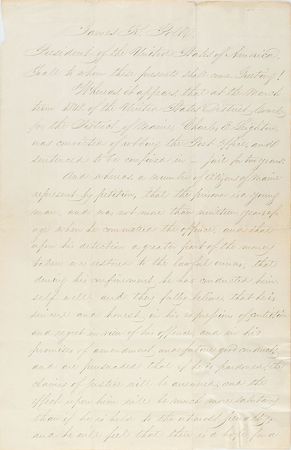 James K. Polk
President of the United States of America,
To all to whom these presents shall come Greeting!
Whereas it appears that at the March
term 1848 of the United States District Court
for the District of Maine, Charles
was convicted of robbing the Post Office, and
sentenced to be confined in jail for two years:
And whereas a number of citizens of Maine
represent by petition, that the prisoner is a young
man, and was not more than nineteen years of
age when he committed the offence, and that
upon his detection a greater part of the money
was restored to the lawful owner, that
during his confinement he has conducted him
self well, and they fully believe that he is
sincere and honest in his expressions of contrition
and regret in view of his offence, and in his
promises of amendment and future good conduct,
and are persuaded that if he is pardoned, the
claims of Justice will be answered, and the
effect upon him will be much more salutary
than if he is held to the utmost penalty,
and he will feel that there is a